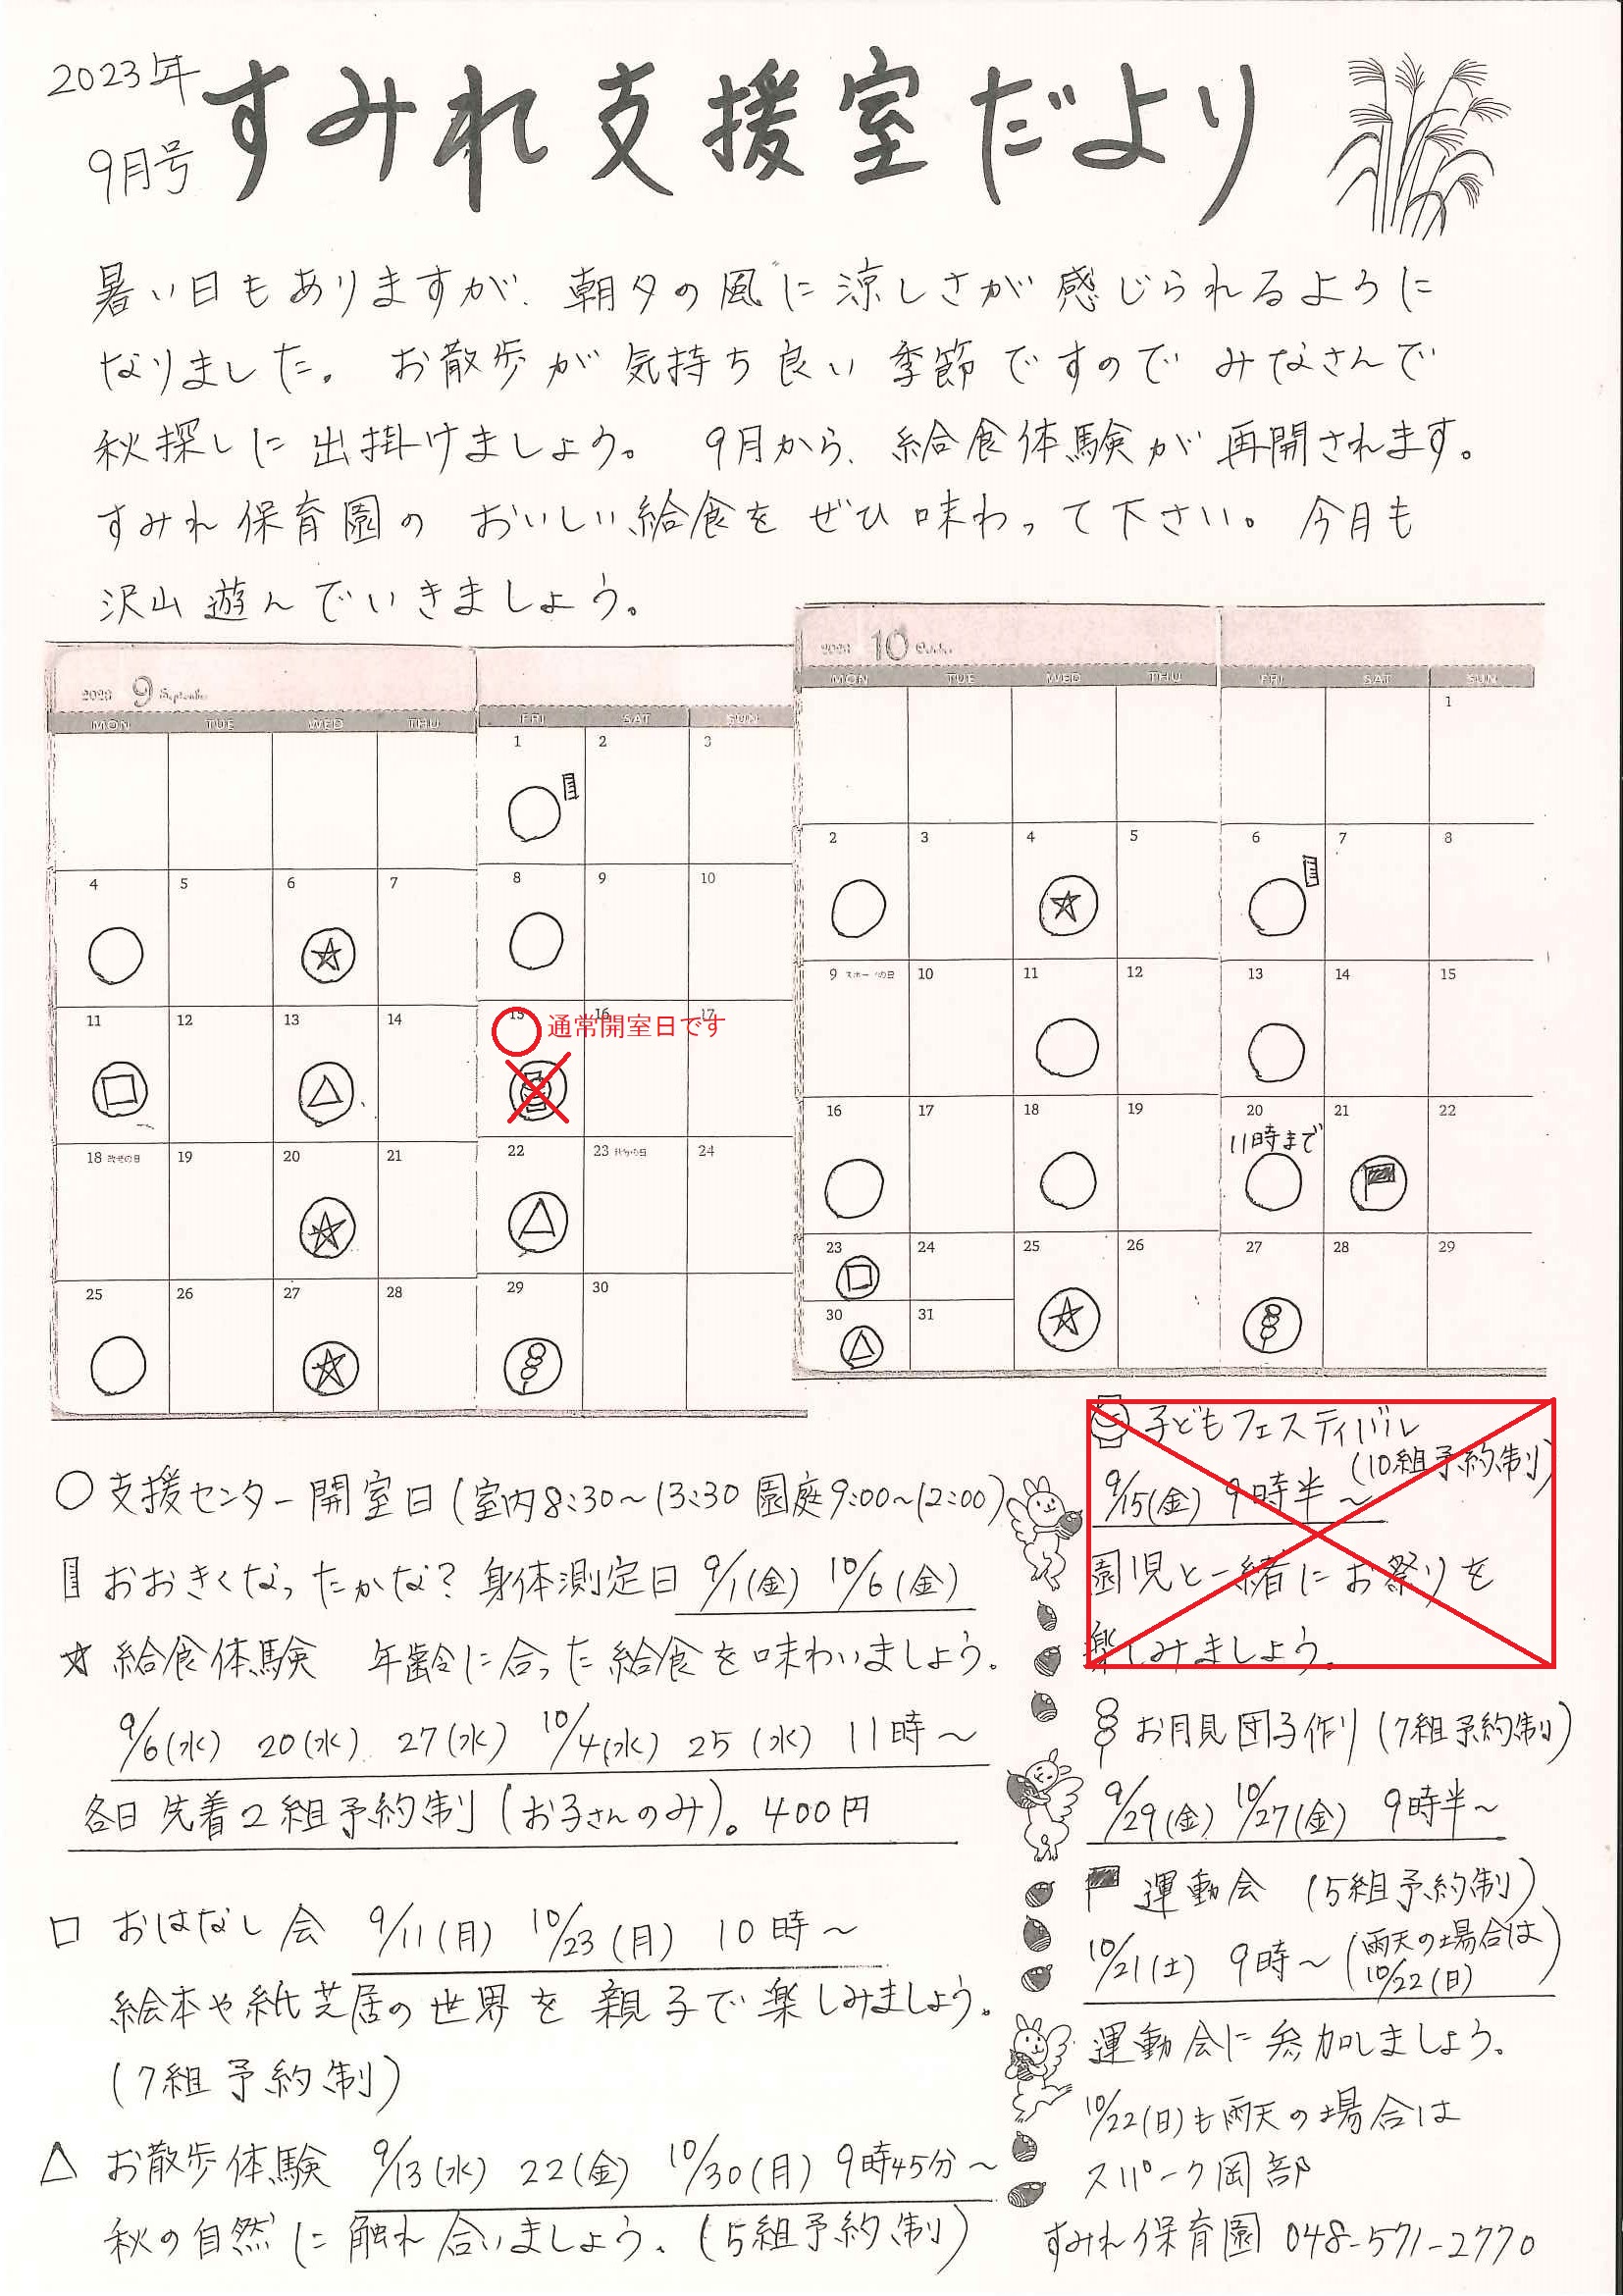 2023年
9月号
すみれ支援室だより
暑い日もありますが、朝夕の風に涼しさが感じられるように
なりました。お散歩が気持ち良い季節ですのでみなさんで
秋探しに出掛けましょう。9月から、給食体験が再開されます。
すみれ保育園のおいしい給食をぜひ味わって下さい。今月も
沢山遊んでいきましょう。
2023 9 September
MON TUE WED THU FRI SAT SUN
1 2 3
4 5 6 7 8 9 10
11 12 13 14 15 16 17
通常開室日です
18 19 20 21 22 23 24
25 26 27 28 29 30
2023 10 October
MON TUE WED THU FRI SAT SUN
1
2 3 4 5 6 7 8
9 スポーツの日 10 11 12 13 14 15
16 17 18 19 20 21 22
11時まで
23 24 25 26 27 28 29
30 31
○支援センター開室日(室内8:30～13:30 園庭9:00～12:00)
おおきくなったかな?身体測定日 9/1(金) 10/6(金)
☆給食体験 年齢に合った給食を味わいましょう。
9/6(水) 20(水) 27(水) 10/4(水) 25(水) 11時～
各日先着2組予約制(お子さんのみ)。400円
□ おはなし会 9/11(月) 10/23(月) 10時～
絵本や紙芝居の世界を親子で楽しみましょう。
(7組予約制)
△ お散歩体験 9/13(水) 22(金) 10/30(月) 9時45分～
秋の自然に触れ合いましょう。(5組予約制)
子どもフェスティバル
(10組予約制)
9/15(金) 9時半～
園児と一緒にお祭りを
楽しみましょう。
お月見団子作り(7組予約制)
9/29(金) 10/27(金) 9時半～
運動会 (5組予約制)
10/21(土) 9時～(雨天の場合は
10/22(日))
運動会に参加しましょう。
10/22(日)も雨天の場合は
スパーク岡部
すみれ保育園 048-571-2770